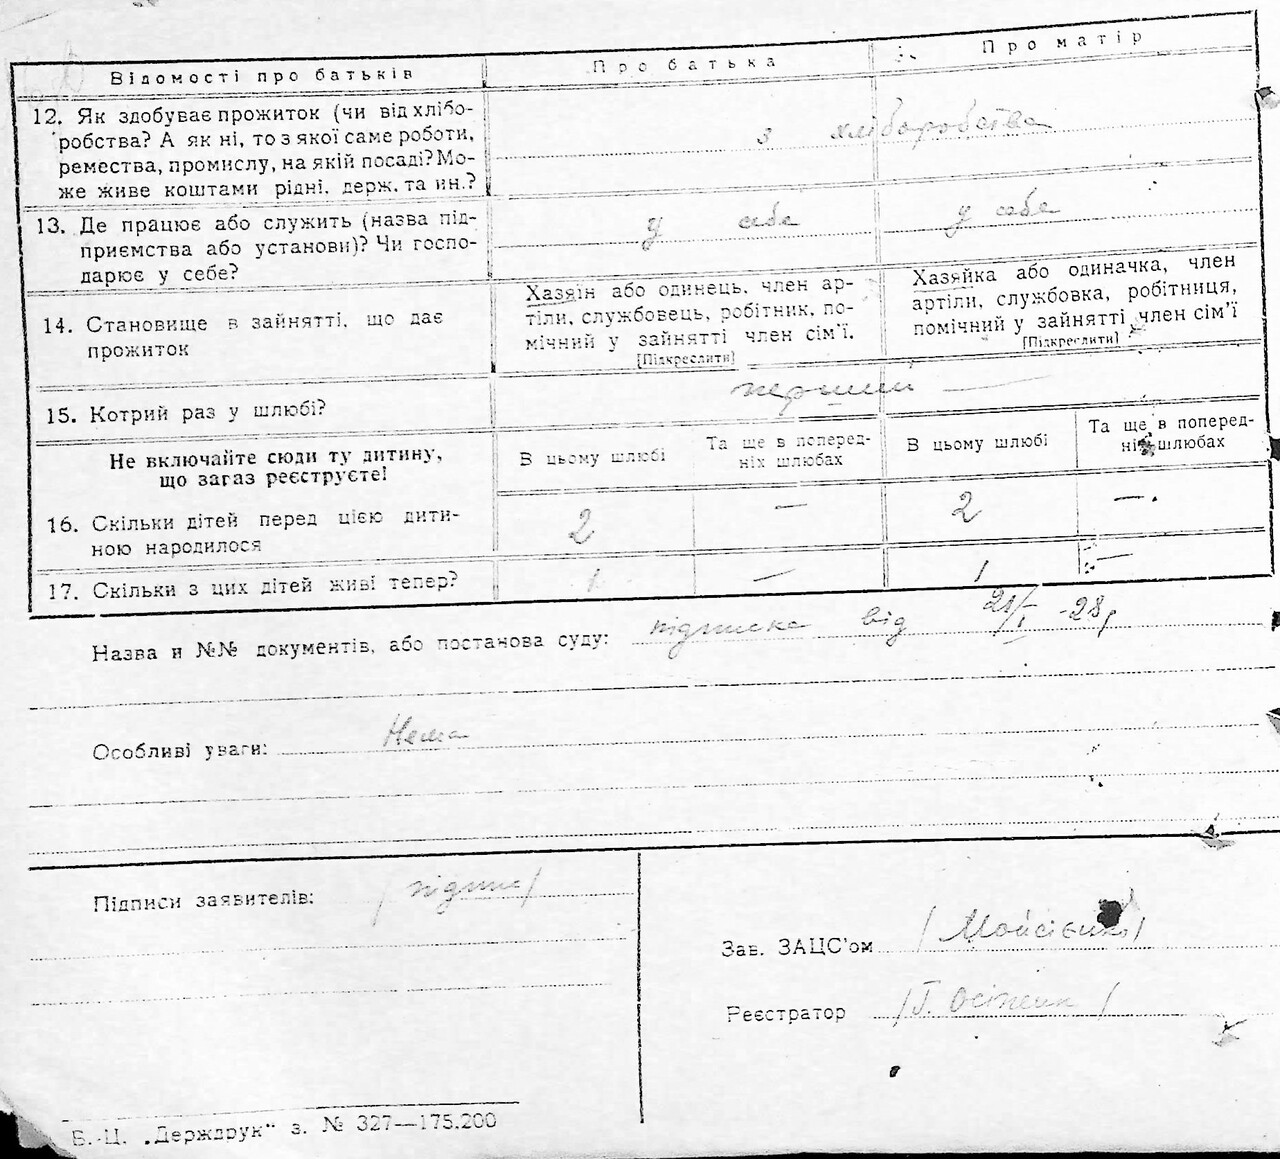 Відомості про батьків
Про батька
Про матір
12. Як здобуває прожиток (чи від хлібо-
робства? А як ні, то з якої саме роботи,
ремества, промислу, на якій посаді? Мо-
же живе коштами рідні, держ. та ин.?
з хліборобства
13. Де працює або служить (назва під-
приємства або установи)? Чи госпо-
дарює у себе?
у себе
у себе
14. Становище в зайнятті, що дає
прожиток
Хазяїн або одинець, член ар-
тілі, службовець, робітник, по-
мічний у зайнятті член сім'ї.
[Підкреслити]
Хазяйка або одиначка, член
артіли, службовка, робітниця,
помічний у зайнятті член сім'ї
[Підкреслити]
15. Котрий раз у шлюбі?
перший —
Не включайте сюди ту дитину,
що зараз реєструєте!
В цьому шлюбі
Та ще в поперед-
ніх шлюбах
В цьому шлюбі
Та ще в поперед-
ніх шлюбах
16. Скільки дітей перед цією дити-
ною народилося
2 — 2 —
17. Скільки з цих дітей живі тепер?
1 — 1 —
Назва и №№ документів, або постанова суду: підписка від 21/I -28р
Особливі уваги: Нема
Підписи заявителів: /підпис/
Зав. ЗАЦС'ом /Мойсієнко/
Реєстратор /Г. /
Б.-Ц. „Держдрук" з. № 327—175.200